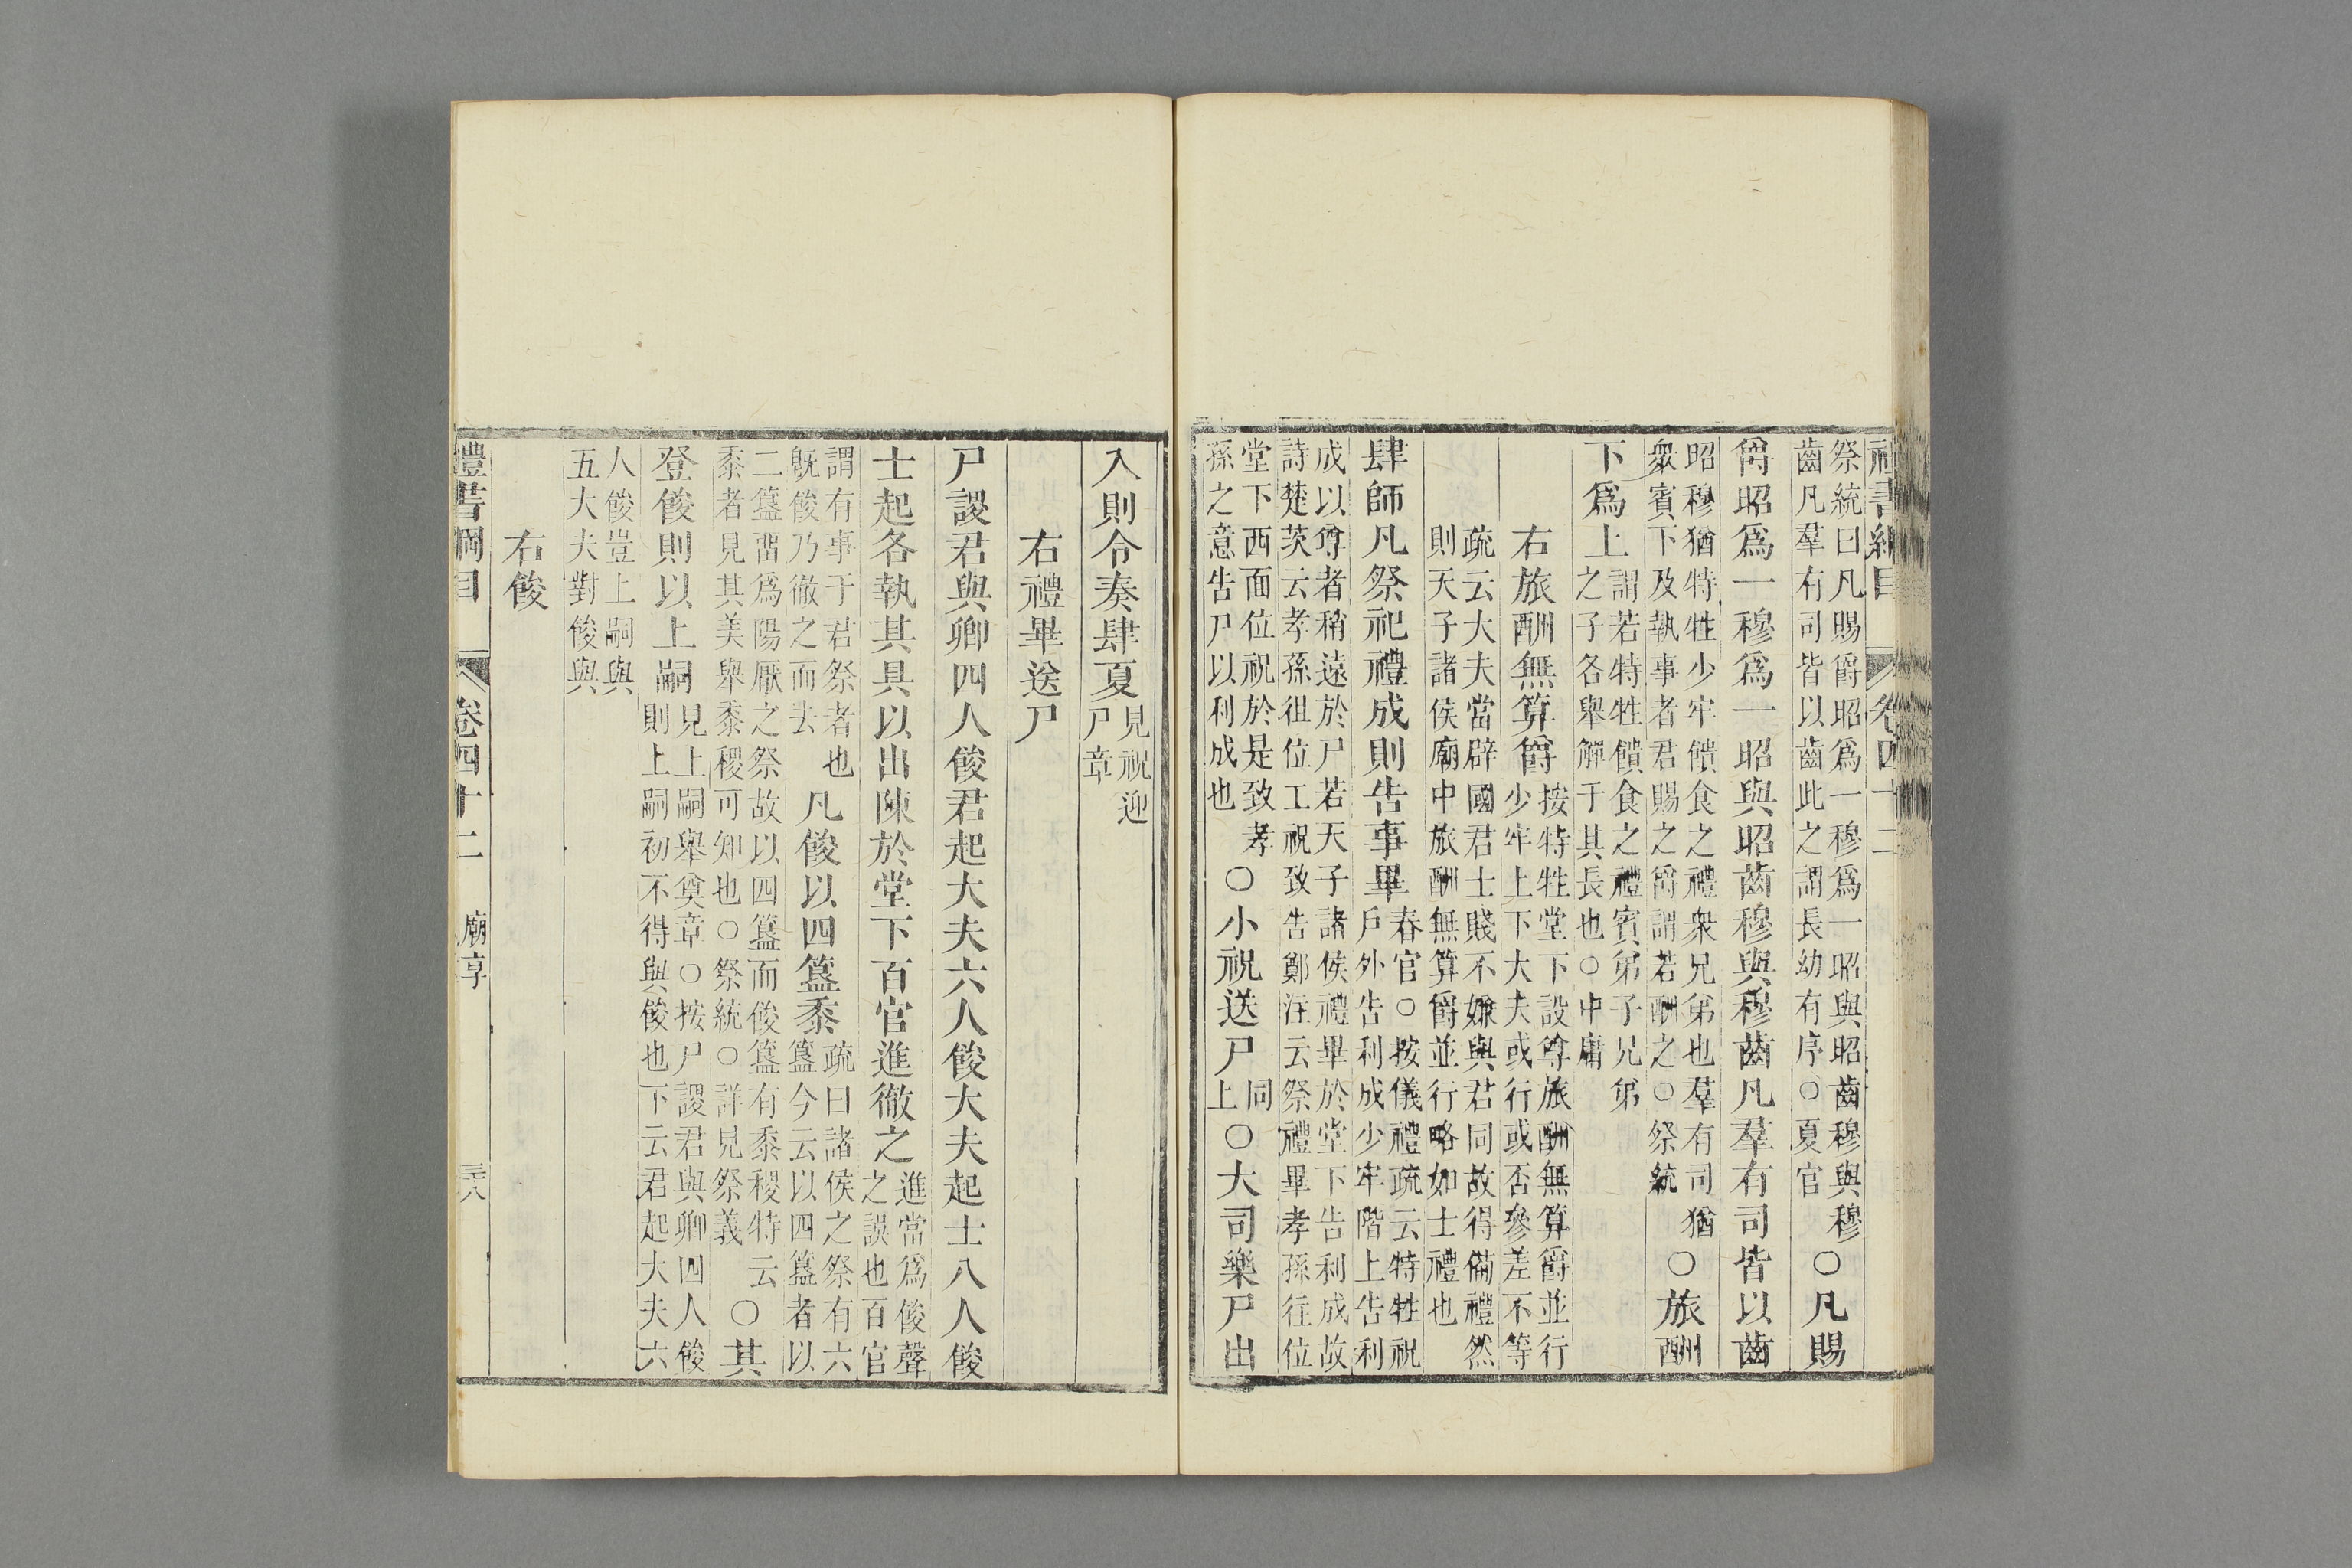 禮書綱目 卷四十二
祭統曰凡賜爵昭爲一穆爲一昭與昭齒穆與穆
齒凡羣有司皆以齒此之謂長幼有序○夏官
○凡賜
爵昭爲一穆爲一昭與昭齒穆與穆齒凡羣有司皆以齒
昭穆猶特牲少牢饋食之禮衆兄弟也羣有司猶
衆賓下及執事者君賜之爵謂若酬之○祭統
○旅酬
下爲上
謂若特牲饋食之禮賓弟子兄弟
之子各舉觶于其長也○中庸
右旅酬無算爵
按特牲堂下設尊旅酬無算爵並行
少牢上下大夫或行或否參差不等
疏云大夫當辟國君士賤不嫌與君同故得備禮然
則天子諸侯廟中旅酬無算爵並行略如士禮也
肆師凡祭祀禮成則告事畢
春官○按儀禮疏云特牲祝
戶外告利成少牢階上告利
成以尊者稍遠於尸若天子諸侯禮畢於堂下告利成故
詩楚茨云孝孫徂位工祝致告鄭注云祭禮畢孝孫往位
堂下西面位祝於是致孝
孫之意告尸以利成也
○小祝送尸
同
上
○大司樂尸出
入則令奏肆夏
見祝迎
尸章
右禮畢送尸
尸謖君與卿四人餕君起大夫六人餕大夫起士八人餕
士起各執其具以出陳於堂下百官進徹之
進當爲餕聲
之誤也百官
謂有事于君祭者也
旣餕乃徹之而去
凡餕以四簋黍
疏曰諸侯之祭有六
簋今云以四簋者以
二簋畱爲陽厭之祭故以四簋而餕簋有黍稷特云
黍者見其美舉黍稷可知也○祭統○詳見祭義
○其
登餕則以上嗣
見上嗣舉奠章○按尸謖君與卿四人餕
則上嗣初不得與餕也下云君起大夫六
人餕豈上嗣與
五大夫對餕與
右餕
禮書綱目 卷四十二 廟享 三十八